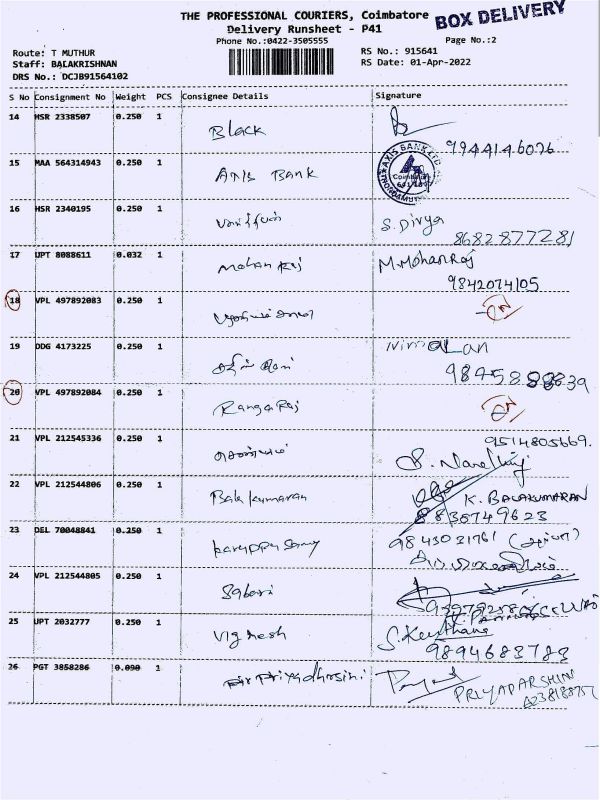 THE PROFESSIONAL COURIERS, Coimbatore
BOX DELIVERY
Delivery Runsheet - P41
Phone No.:0422-3505555
Page No.:2
Route: T MUTHUR
RS No.: 915641
Staff: BALAKRISHNAN
RS Date: 01-Apr-2022
DRS No.: DCJB91564102
S No Consignment No Weight PCS Consignee Details Signature
14 HSR 2338507 0.250 1 Black
9944146076
15 MAA 564314943 0.250 1 Axis Bank
AXIS BANK LTD
Coimbatore
16 HSR 2340195 0.250 1 S. Divya
8682877281
17 UPT 8088611 0.032 1 Mohan Raj M. Mohan Raj
9842074105
18 VPL 497892083 0.250 1
19 DDG 4173225 0.250 1 Nirmalan
20 VPL 497892084 0.250 1 Ranga Raj
21 VPL 212545336 0.250 1 9514805669.
22 VPL 212544806 0.250 1 Bala kumaran K. BALAKUMARAN
8838749623
23 DEL 70048841 0.250 1 Karuppu Samy 9843031761
24 VPL 212544805 0.250 1 Sabari
25 UPT 2032777 0.250 1 Vignesh S. Keerthana
9894683783
26 PGT 3858286 0.090 1 Priyadharsini
PRIYADARSHINI